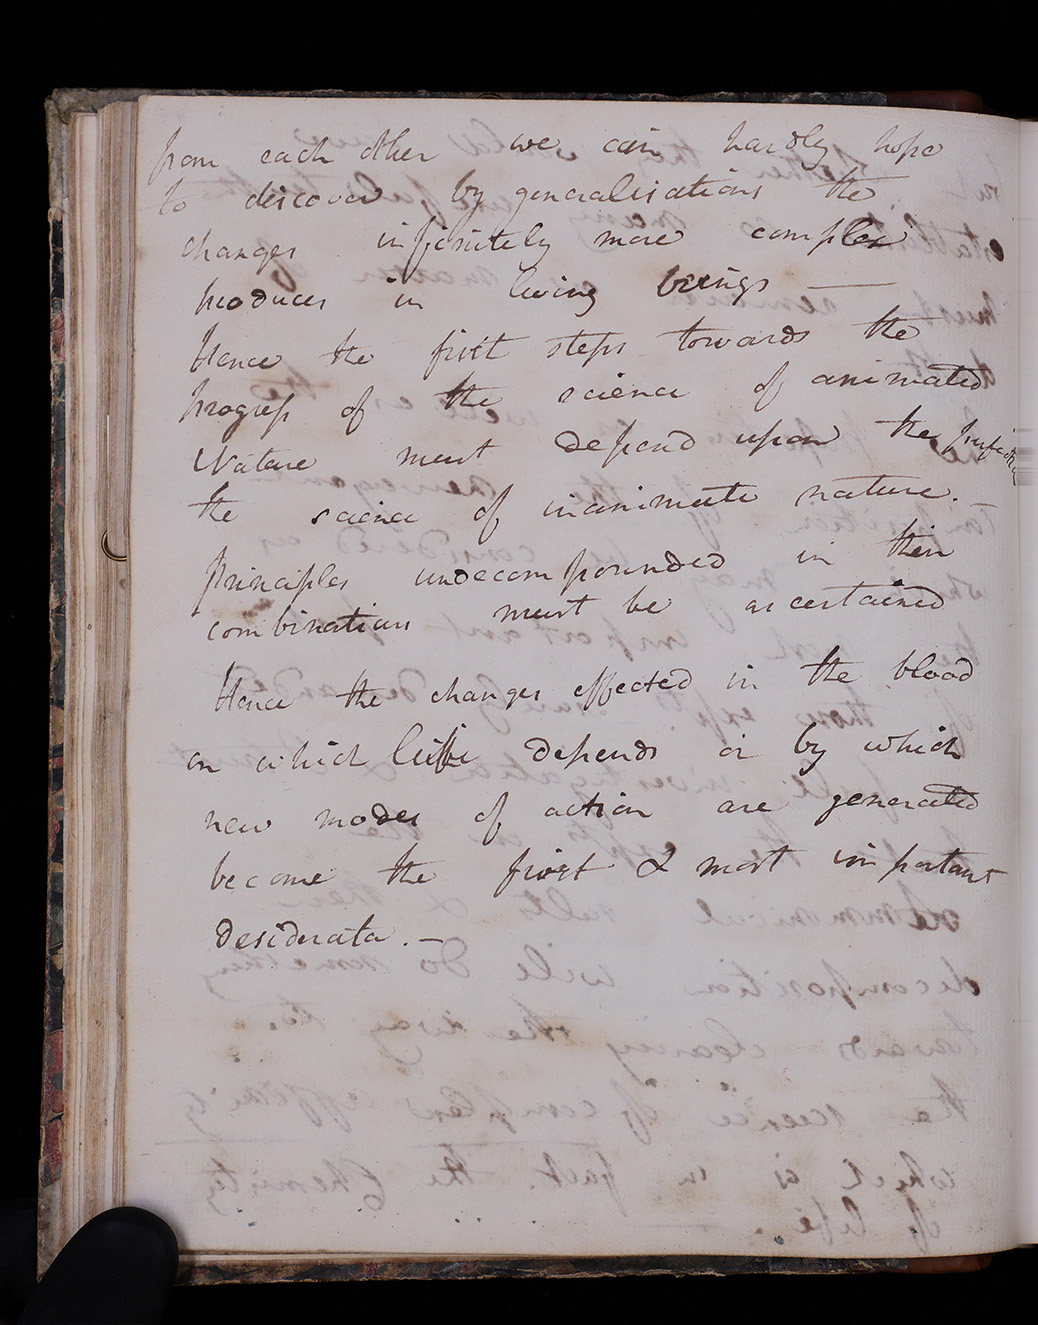 from each other we can hardly hope
to discover by generalisations the
changes infinitely more complex
produces in living beings —
Hence the first steps towards the
progress of the science of animated
Nature must depend upon the perfection
the science of inanimate nature. —
principles undecompounded in their
combinations must be ascertained
Hence the changes effected in the blood
on which life depends or by which
new modes of action are generated
become the first & most important
desiderata. —